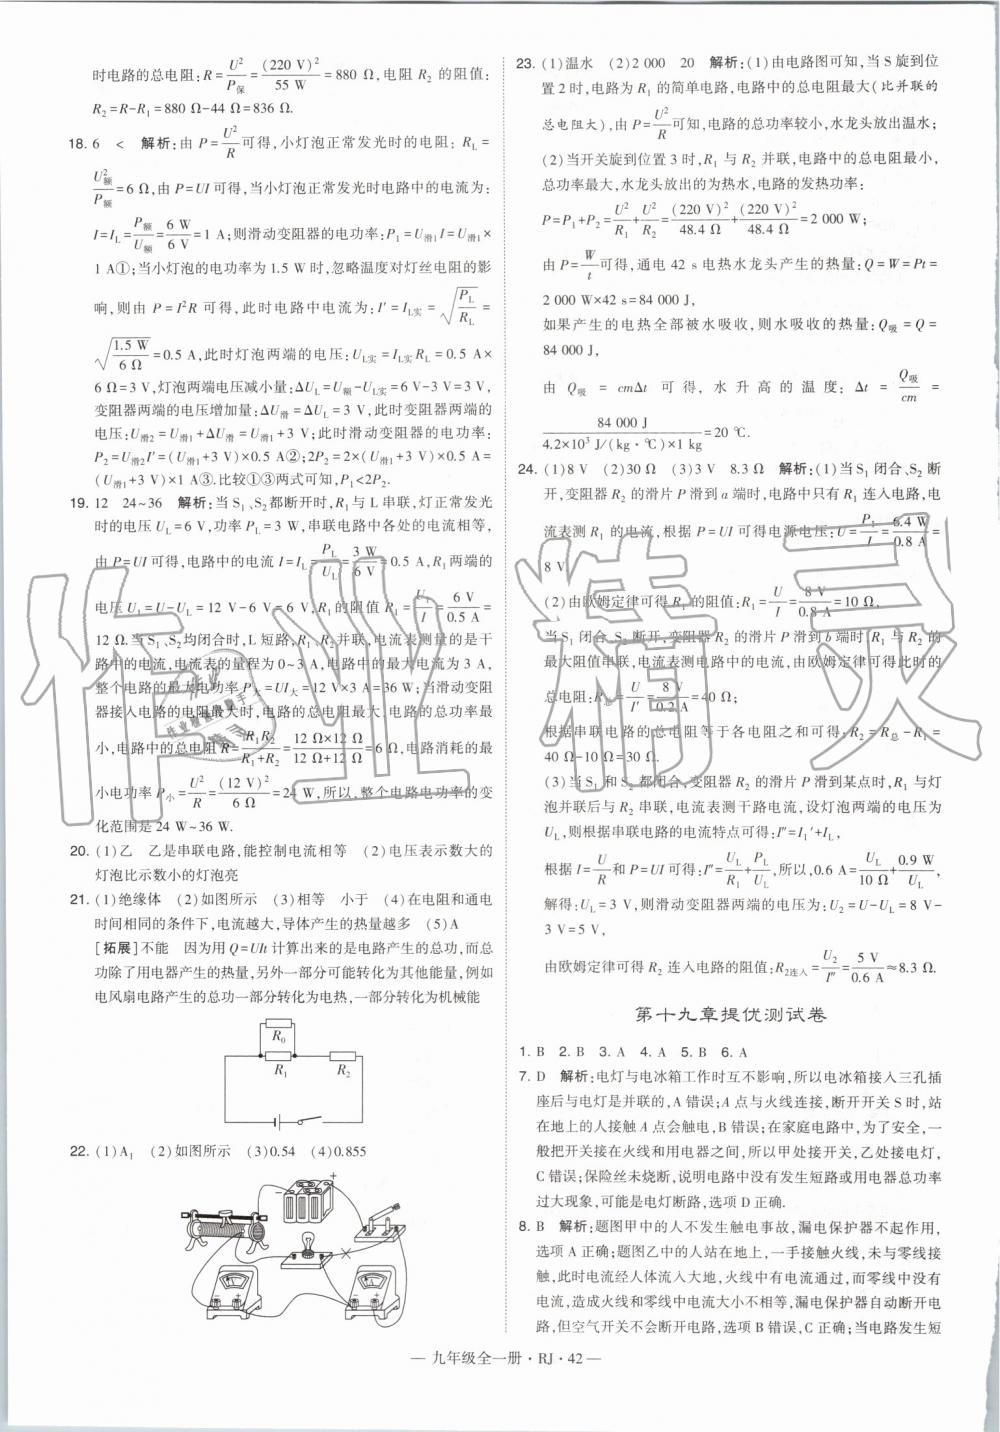 时电路的总电阻：R=U²/P保=(220 V)²/55 W=880 Ω，电阻 R₂ 的阻值：
R₂=R-R₁=880 Ω-44 Ω=836 Ω.
18. 6　<　解析：由 P=U²/R可得，小灯泡正常发光时的电阻：R_L=
U额²/P额=6 Ω，由 P=UI 可得，当小灯泡正常发光时电路中的电流为：
I=I_L=P额/U额=6 W/6 V=1 A；则滑动变阻器的电功率：P₁=U滑₁I=U滑₁×
1 A①；当小灯泡的电功率为 1.5 W 时，忽略温度对灯丝电阻的影
响，由 P=I²R 可得，此时电路中电流为：I′=I_L实=√(P_L/R_L)=
√(1.5 W/6 Ω)=0.5 A，此时灯泡两端的电压：U_L实=I_L实R_L=0.5 A×
6 Ω=3 V，灯泡两端电压减小量：ΔU_L=U额-U_L实=6 V-3 V=3 V，
变阻器两端的电压增加量：ΔU滑=ΔU_L=3 V，此时变阻器两端的
电压：U滑₂=U滑₁+ΔU滑=U滑₁+3 V；此时滑动变阻器的电功率：
P₂=U滑₂I′=(U滑₁+3 V)×0.5 A②；2P₂=2×(U滑₁+3 V)×0.5 A=
(U滑₁+3 V)×1 A③．比较①③两式可知，P₁<2P₂.
19. 12　24~36　解析：当 S₁、S₂都断开时，R₁与 L 串联，灯正常发光
时的电压 U_L=6 V，功率 P_L=3 W，串联电路中各处的电流相等，
由 P=UI 可得，电路中的电流 I=I_L=P_L/U_L=3 W/6 V=0.5 A，R₁两端的
电压 U₁=U-U_L=12 V-6 V=6 V，R₁的阻值 R₁=U₁/I=6 V/0.5 A=
12 Ω．当 S₁、S₂均闭合时，L 短路，R₁、R₂并联，电流表测量的是干
路中的电流，电流表的量程为 0~3 A，电路中的最大电流为 3 A，
整个电路的最大电功率 P大=UI大=12 V×3 A=36 W；当滑动变阻
器接入电路的电阻最大时，电路的总电阻最大，电路的总功率最
小，电路中的总电阻 R=R₁R₂/(R₁+R₂)=12 Ω×12 Ω/(12 Ω+12 Ω)=6 Ω，电路消耗的最
小电功率 P小=U²/R=(12 V)²/6 Ω=24 W，所以，整个电路电功率的变
化范围是 24 W~36 W.
20. (1)乙　乙是串联电路，能控制电流相等　(2)电压表示数大的
灯泡比示数小的灯泡亮
21. (1)绝缘体　(2)如图所示　(3)相等　小于　(4)在电阻和通电
时间相同的条件下，电流越大，导体产生的热量越多　(5)A
[拓展]不能　因为用 Q=UIt 计算出来的是电路产生的总功，而总
功除了用电器产生的热量，另外一部分可能转化为其他能量，例如
电风扇电路产生的总功一部分转化为电热，一部分转化为机械能
R₀
R₁　R₂
22. (1)A₁　(2)如图所示　(3)0.54　(4)0.855
23. (1)温水　(2)2 000　20　解析：(1)由电路图可知，当 S 旋到位
置 2 时，电路为 R₁的简单电路，电路中的总电阻最大（比并联的
总电阻大），由 P=U²/R可知，电路的总功率较小，水龙头放出温水；
(2)当开关旋到位置 3 时，R₁与 R₂并联，电路中的总电阻最小，
总功率最大，水龙头放出的为热水，电路的发热功率：
P=P₁+P₂=U²/R₁+U²/R₂=(220 V)²/48.4 Ω+(220 V)²/48.4 Ω=2 000 W；
由 P=W/t可得，通电 42 s 电热水龙头产生的热量：Q=W=Pt=
2 000 W×42 s=84 000 J，
如果产生的电热全部被水吸收，则水吸收的热量：Q吸=Q=
84 000 J，
由 Q吸=cmΔt 可得，水升高的温度：Δt=Q吸/cm=
84 000 J/(4.2×10³ J/(kg·℃)×1 kg)=20 ℃.
24. (1)8 V　(2)30 Ω　(3)3 V　8.3 Ω　解析：(1)当 S₁闭合、S₂断
开，变阻器 R₂的滑片 P 滑到 a 端时，电路中只有 R₁连入电路，电
流表测 R₁的电流，根据 P=UI 可得电源电压：U=P₁/I=6.4 W/0.8 A=
8 V
(2)由欧姆定律可得 R₁的阻值：R₁=U/I=8 V/0.8 A=10 Ω，
当 S₁闭合、S₂断开，变阻器 R₂的滑片 P 滑到 b 端时，R₁与 R₂的
最大阻值串联，电流表测电路中的电流，由欧姆定律可得此时的
总电阻：R总=U/I′=8 V/0.2 A=40 Ω；
根据串联电路的总电阻等于各电阻之和可知：R₂=R总-R₁=
40 Ω-10 Ω=30 Ω；
(3)当 S₁和 S₂都闭合，变阻器 R₂的滑片 P 滑到某点时，R₁与灯
泡并联后与 R₂串联，电流表测干路电流，设灯泡两端的电压为
U_L，则根据串联电路的电流特点可得：I″=I₁′+I_L，
根据 I=U/R和 P=UI 可得：I″=U_L/R₁+P_L/U_L，所以，0.6 A=U_L/10 Ω+0.9 W/U_L，
解得：U_L=3 V，则滑动变阻器两端的电压为：U₂=U-U_L=8 V-
3 V=5 V，
由欧姆定律可得 R₂连入电路的阻值：R₂连入=U₂/I″=5 V/0.6 A≈8.3 Ω.
第十九章提优测试卷
1. B　2. B　3. A　4. A　5. B　6. A
7. D　解析：电灯与电冰箱工作时互不影响，所以电冰箱接入三孔插
座后与电灯是并联的，A 错误；A 点与火线连接，断开开关 S 时，站
在地上的人接触 A 点会触电，B 错误；在家庭电路中，为了安全，一
般将开关接在火线和用电器之间，所以甲处接开关，乙处接电灯，
C 错误；保险丝未烧断，说明电路中没有发生短路或用电器功率
过大现象，可能是电灯断路，选项 D 正确.
8. B　解析：题图甲中的人不发生触电事故，漏电保护器不起作用，
选项 A 正确；题图乙中的人站在地上，一手接触火线，未与零线接
触，此时电流经人体流入大地，火线中有电流通过，而零线中没有
电流，造成火线和零线中电流大小不相等，漏电保护器自动断开电
路，但空气开关不会断开电路，选项 B 错误，C 正确；当电路发生短
— 九年级全一册·RJ·42 —
作业精灵